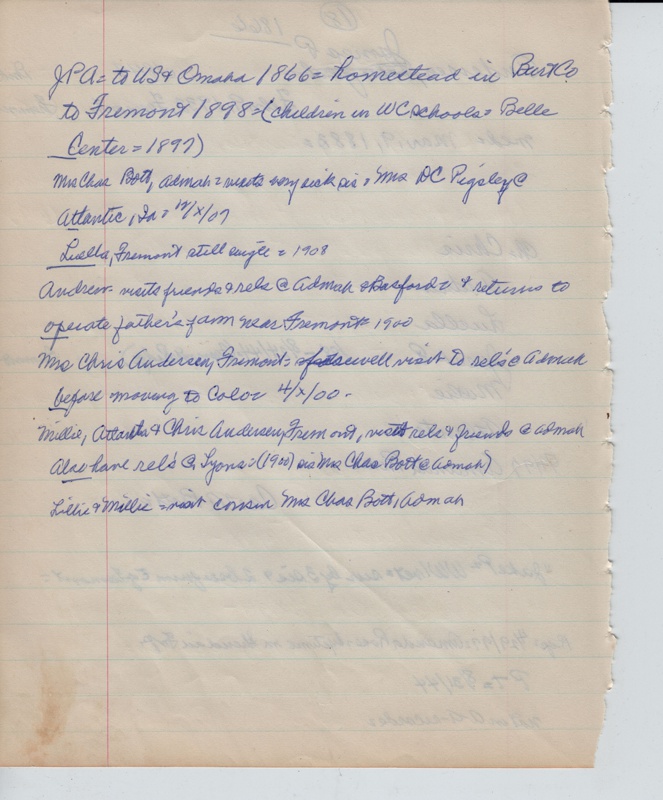 JPA = to US & Omaha 1866 = homestead in Burt Co.
to Fremont 1898 = (children in WC schools = Belle
Center = 1897)
Mrs Chas Bott, Admah = visits very sick sis = Mrs DC Pigsley @
Atlantic, Ia = 12/X/07
Luella, Fremont still single = 1908
Andrew visits friends & rels @ Admah & Basford = & returns to
operate father's farm near Fremont 1900
Mrs Chris Andersen, Fremont = farewell visit to rels @ Admah
before moving to Colo = 4/X/00 -
Millie, & Chris Andersen, Fremont, visit rels & friends @ Admah
Also have rels @ Lyons = (1900) sis Mrs Chas Bott @ Admah)
Lillie & Millie = visit cousin Mrs Chas Bott, Admah